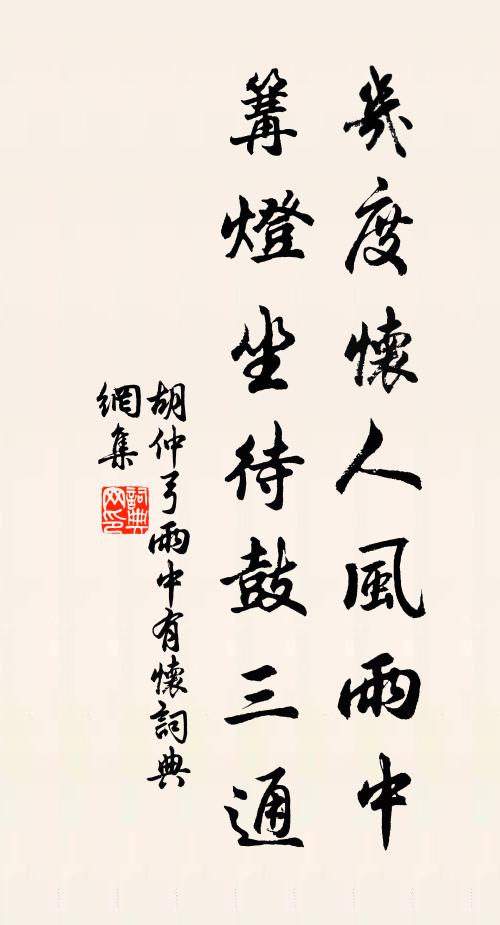 幾度懷人風雨中
篝燈坐待鼓三通
胡仲弓雨中有懷詞典
網集
詞典
网印